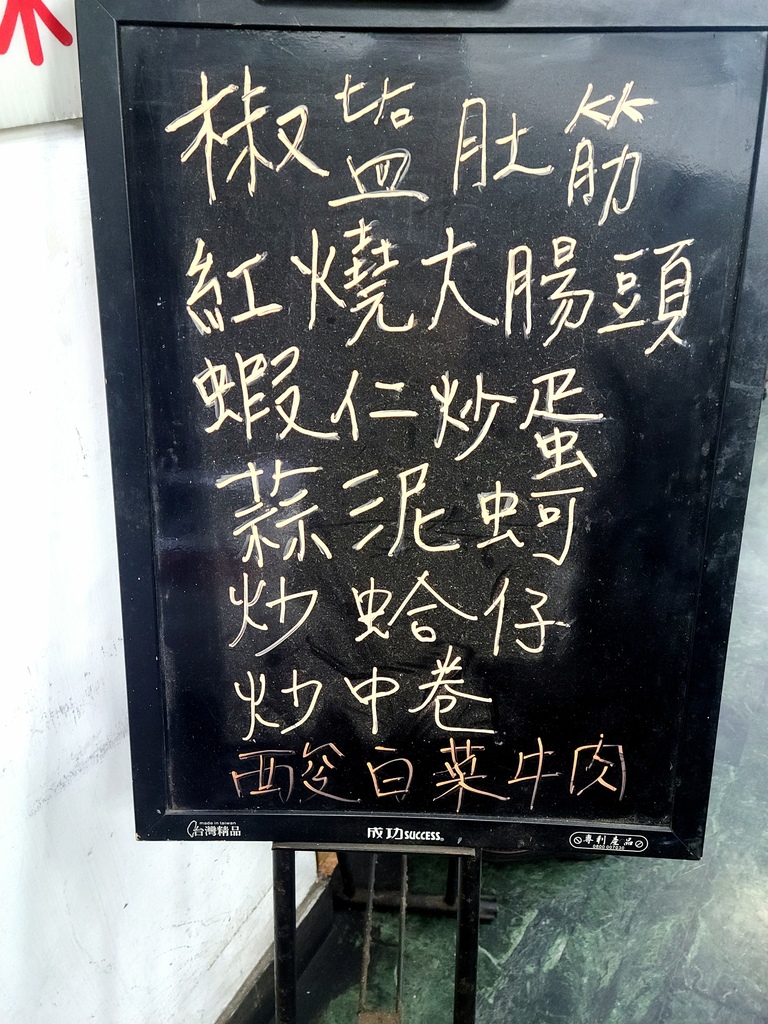 椒塩肚筋
紅燒大腸頭
蝦仁炒蛋
蒜泥蚵
炒蛤仔
炒中卷
酸白菜牛肉
made in taiwan
台灣精品
成功SUCCESS®
專利產品
0800 007030